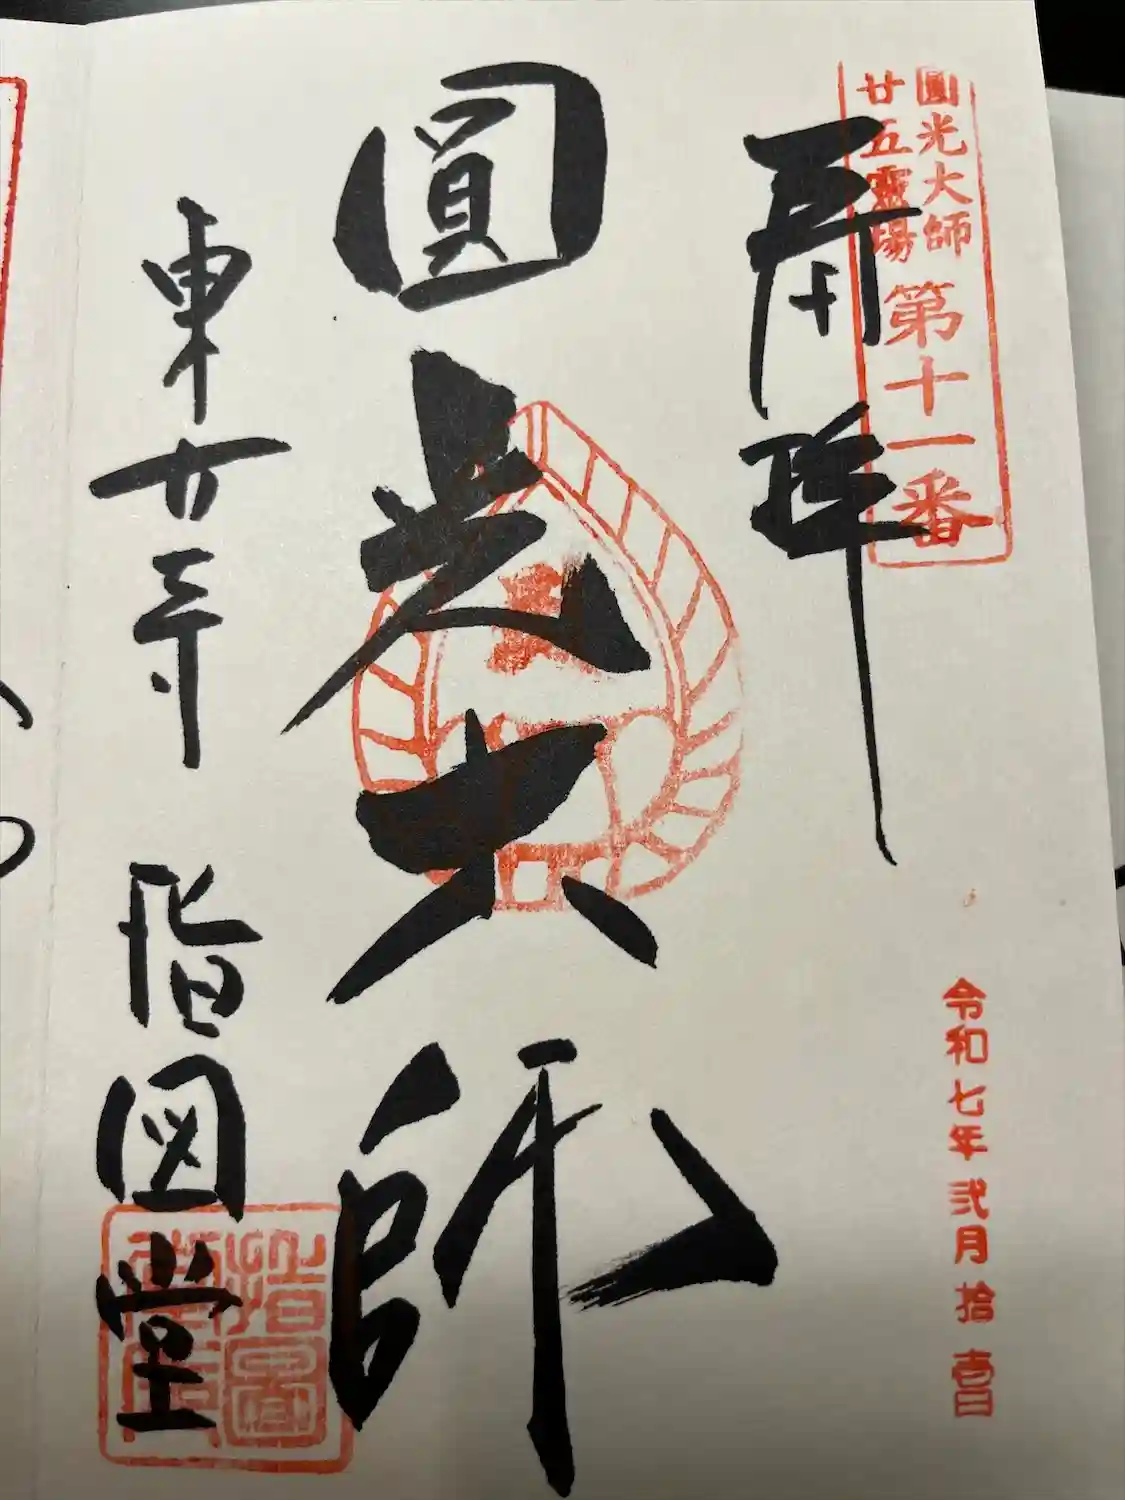 圓光大師
廿五靈場
第十一番
奉拝
令和七年弐月拾壱日
圓光大師
東大寺 指図堂
指圖堂印